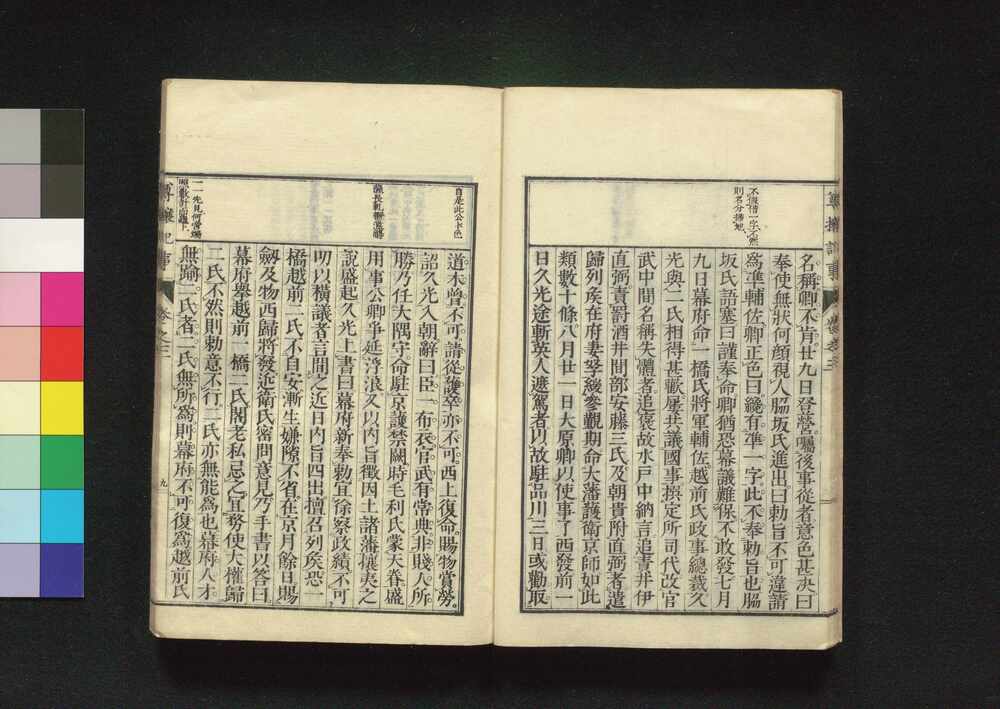 名稱卿不肯廿九日登營囑後事從者意色甚决曰
奉使無狀何顔視人脇坂氏進出曰勅旨不可違請
爲準輔佐卿正色曰纔有準一字此不奉勅旨也脇
坂氏語塞曰謹奉命卿猶恐幕議難保不敢發七月
九日幕府命一橋氏將軍輔佐越前氏政事總裁久
光與二氏相得甚歡屢共議國事撰定所司代改官
武中間名稱失體者追褒故水戸中納言追責井伊
直弼責罸酒井間部安藤三氏及朝貴附直弼者遣
歸列矦在府妻孥緩參覲期命大藩護衛京師如此
類數十條八月廿一日大原卿以使事了西發前一
日久光途斬英人遮駕者以故駐品川三日或勸取
不假借一字不然
則名分掃地
尊攘紀事
卷之三
道木曾不可請從護卒亦不可西上復命賜物賞勞
詔久光入朝辭曰臣一布衣官武有常典非賤人所
勝乃任大隅守命駐京護禁闕時毛利氏蒙天眷盛
用事公卿爭延浮浪又以内旨徴因土諸藩攘夷之
說盛起久光上書曰幕府新奉勅宜徐察政績不可
叨以横議者言間之近日内旨四出擅召列矦恐一
橋越前二氏不自安漸生嫌隙不省在京月餘日賜
劔及物西歸將發近衛氏密問意見乃手書以答曰
幕府擧越前一橋二氏閣老私忌之宜務使大權歸
二氏不然則勅意不行二氏亦無能爲也幕府人才
無踰二氏者二氏無所爲則幕府不可復爲越前氏
自是此公本色
薩長軋轢濫觴
尊攘紀事
卷之三
九